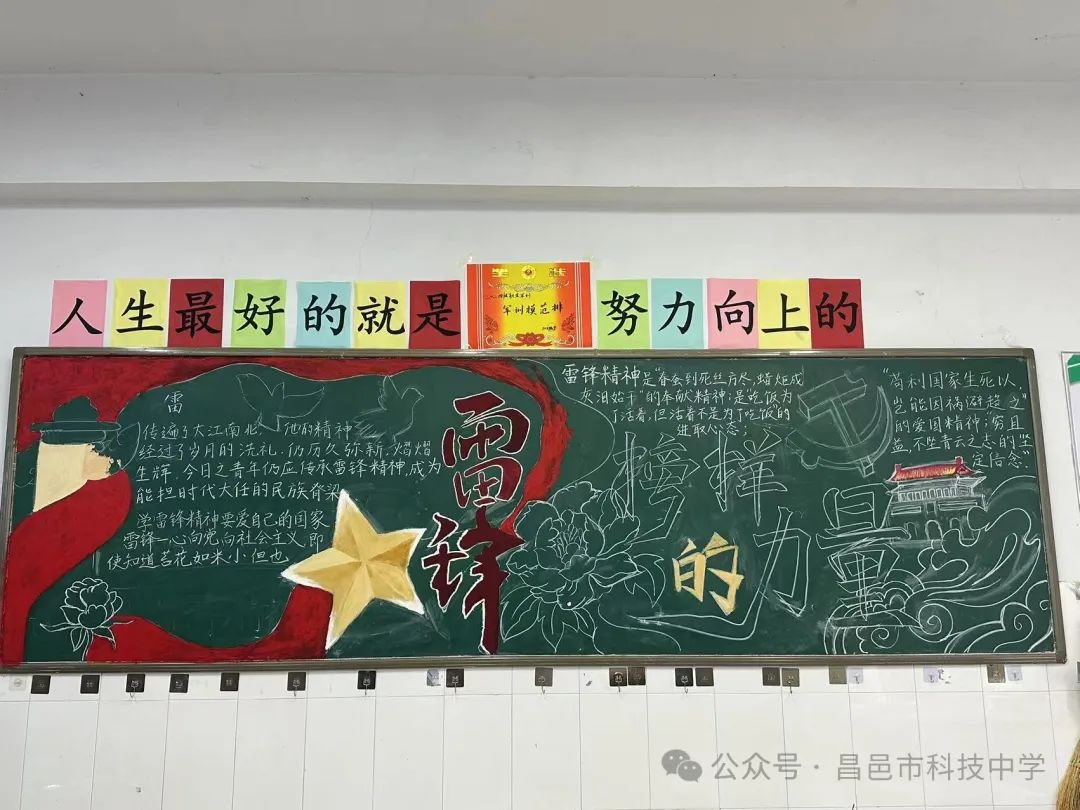 人生最好的就是
军训模范排
努力向上的
雷
传遍了大江南北 他的精神
经过了岁月的洗礼,仍历久弥新,熠熠
生辉,今日之青年仍应传承雷锋精神,成为
能担时代大任的民族脊梁
学雷锋精神要爱自己的国家
雷锋一心向党向社会主义,即
使知道苔花如米小但也
雷锋
雷锋精神是“春蚕到死丝方尽,蜡炬成
灰泪始干”的奉献精神;是吃饭为
了活着,但活着不是为了吃饭的
进取心态;
榜样
的
力量
“苟利国家生死以,
岂能因祸避趋之”
的爱国精神;穷且
益,不坐青云之志的坚
定信念.”
公众号·昌邑市科技中学